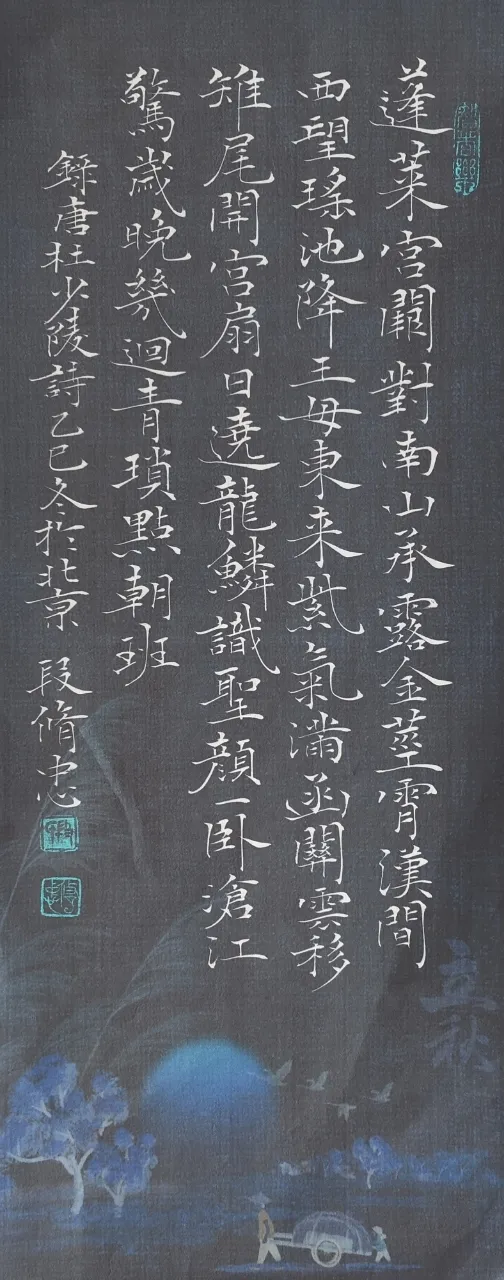 蓬莱宫闕對南山承露金莖霄漢間
西望瑤池降王母東来紫氣滿函關雲移
雉尾開宫扇日遶龍鱗識聖顔一卧滄江
驚歲晚幾迴青瑣點朝班
錄唐杜少陵詩乙巳冬於北京 段脩忠
立秋